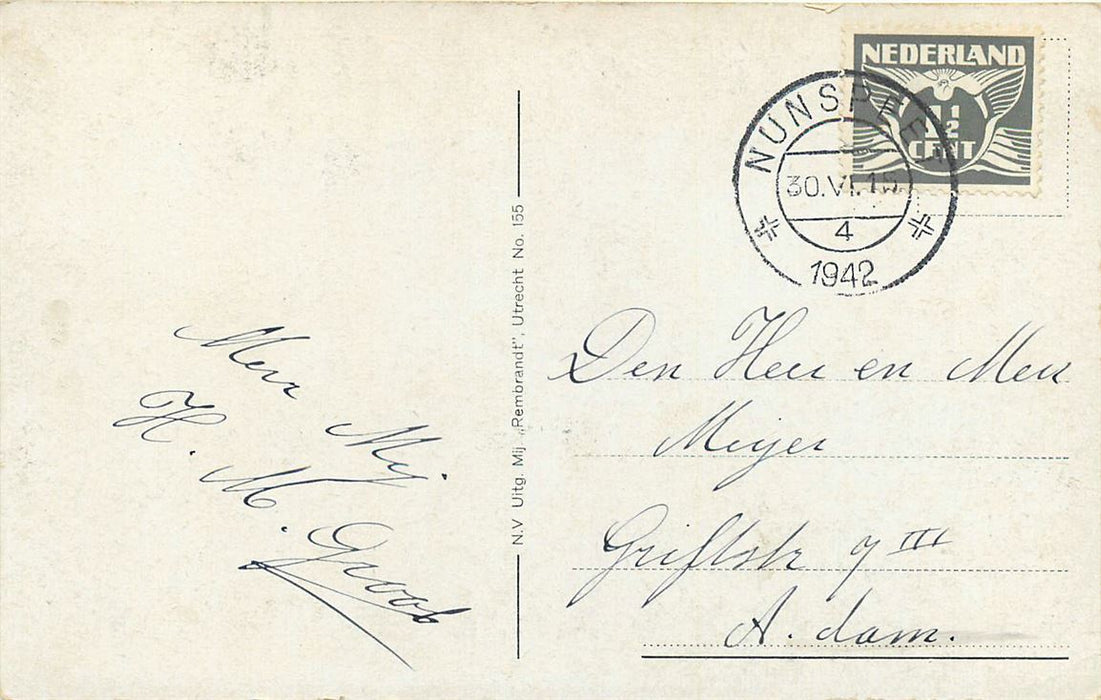 NEDERLAND
1½
CENT
NUNSPEET
30.VI.15
4
1942
N.V Uitg. Mij. „Rembrandt”, Utrecht No. 155
Mevr Mij.
H. M. Groob
Den Heer en Mevr
Meijer
Griftstr 7 III
A. dam.